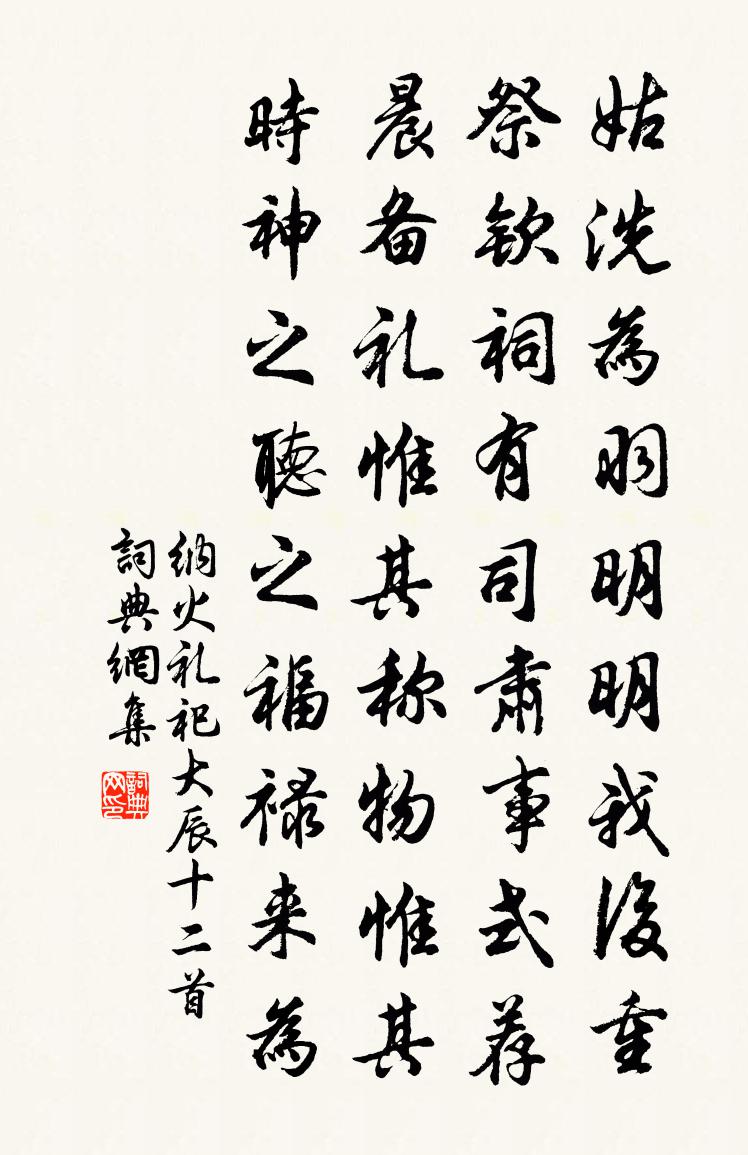 姑洗為羽明明我後重
祭欽祠有司肅事式荐
晨备礼惟其称物惟其
時神之聽之福禄来為
納火礼祀大辰十二首
詞典網集
詞典网印